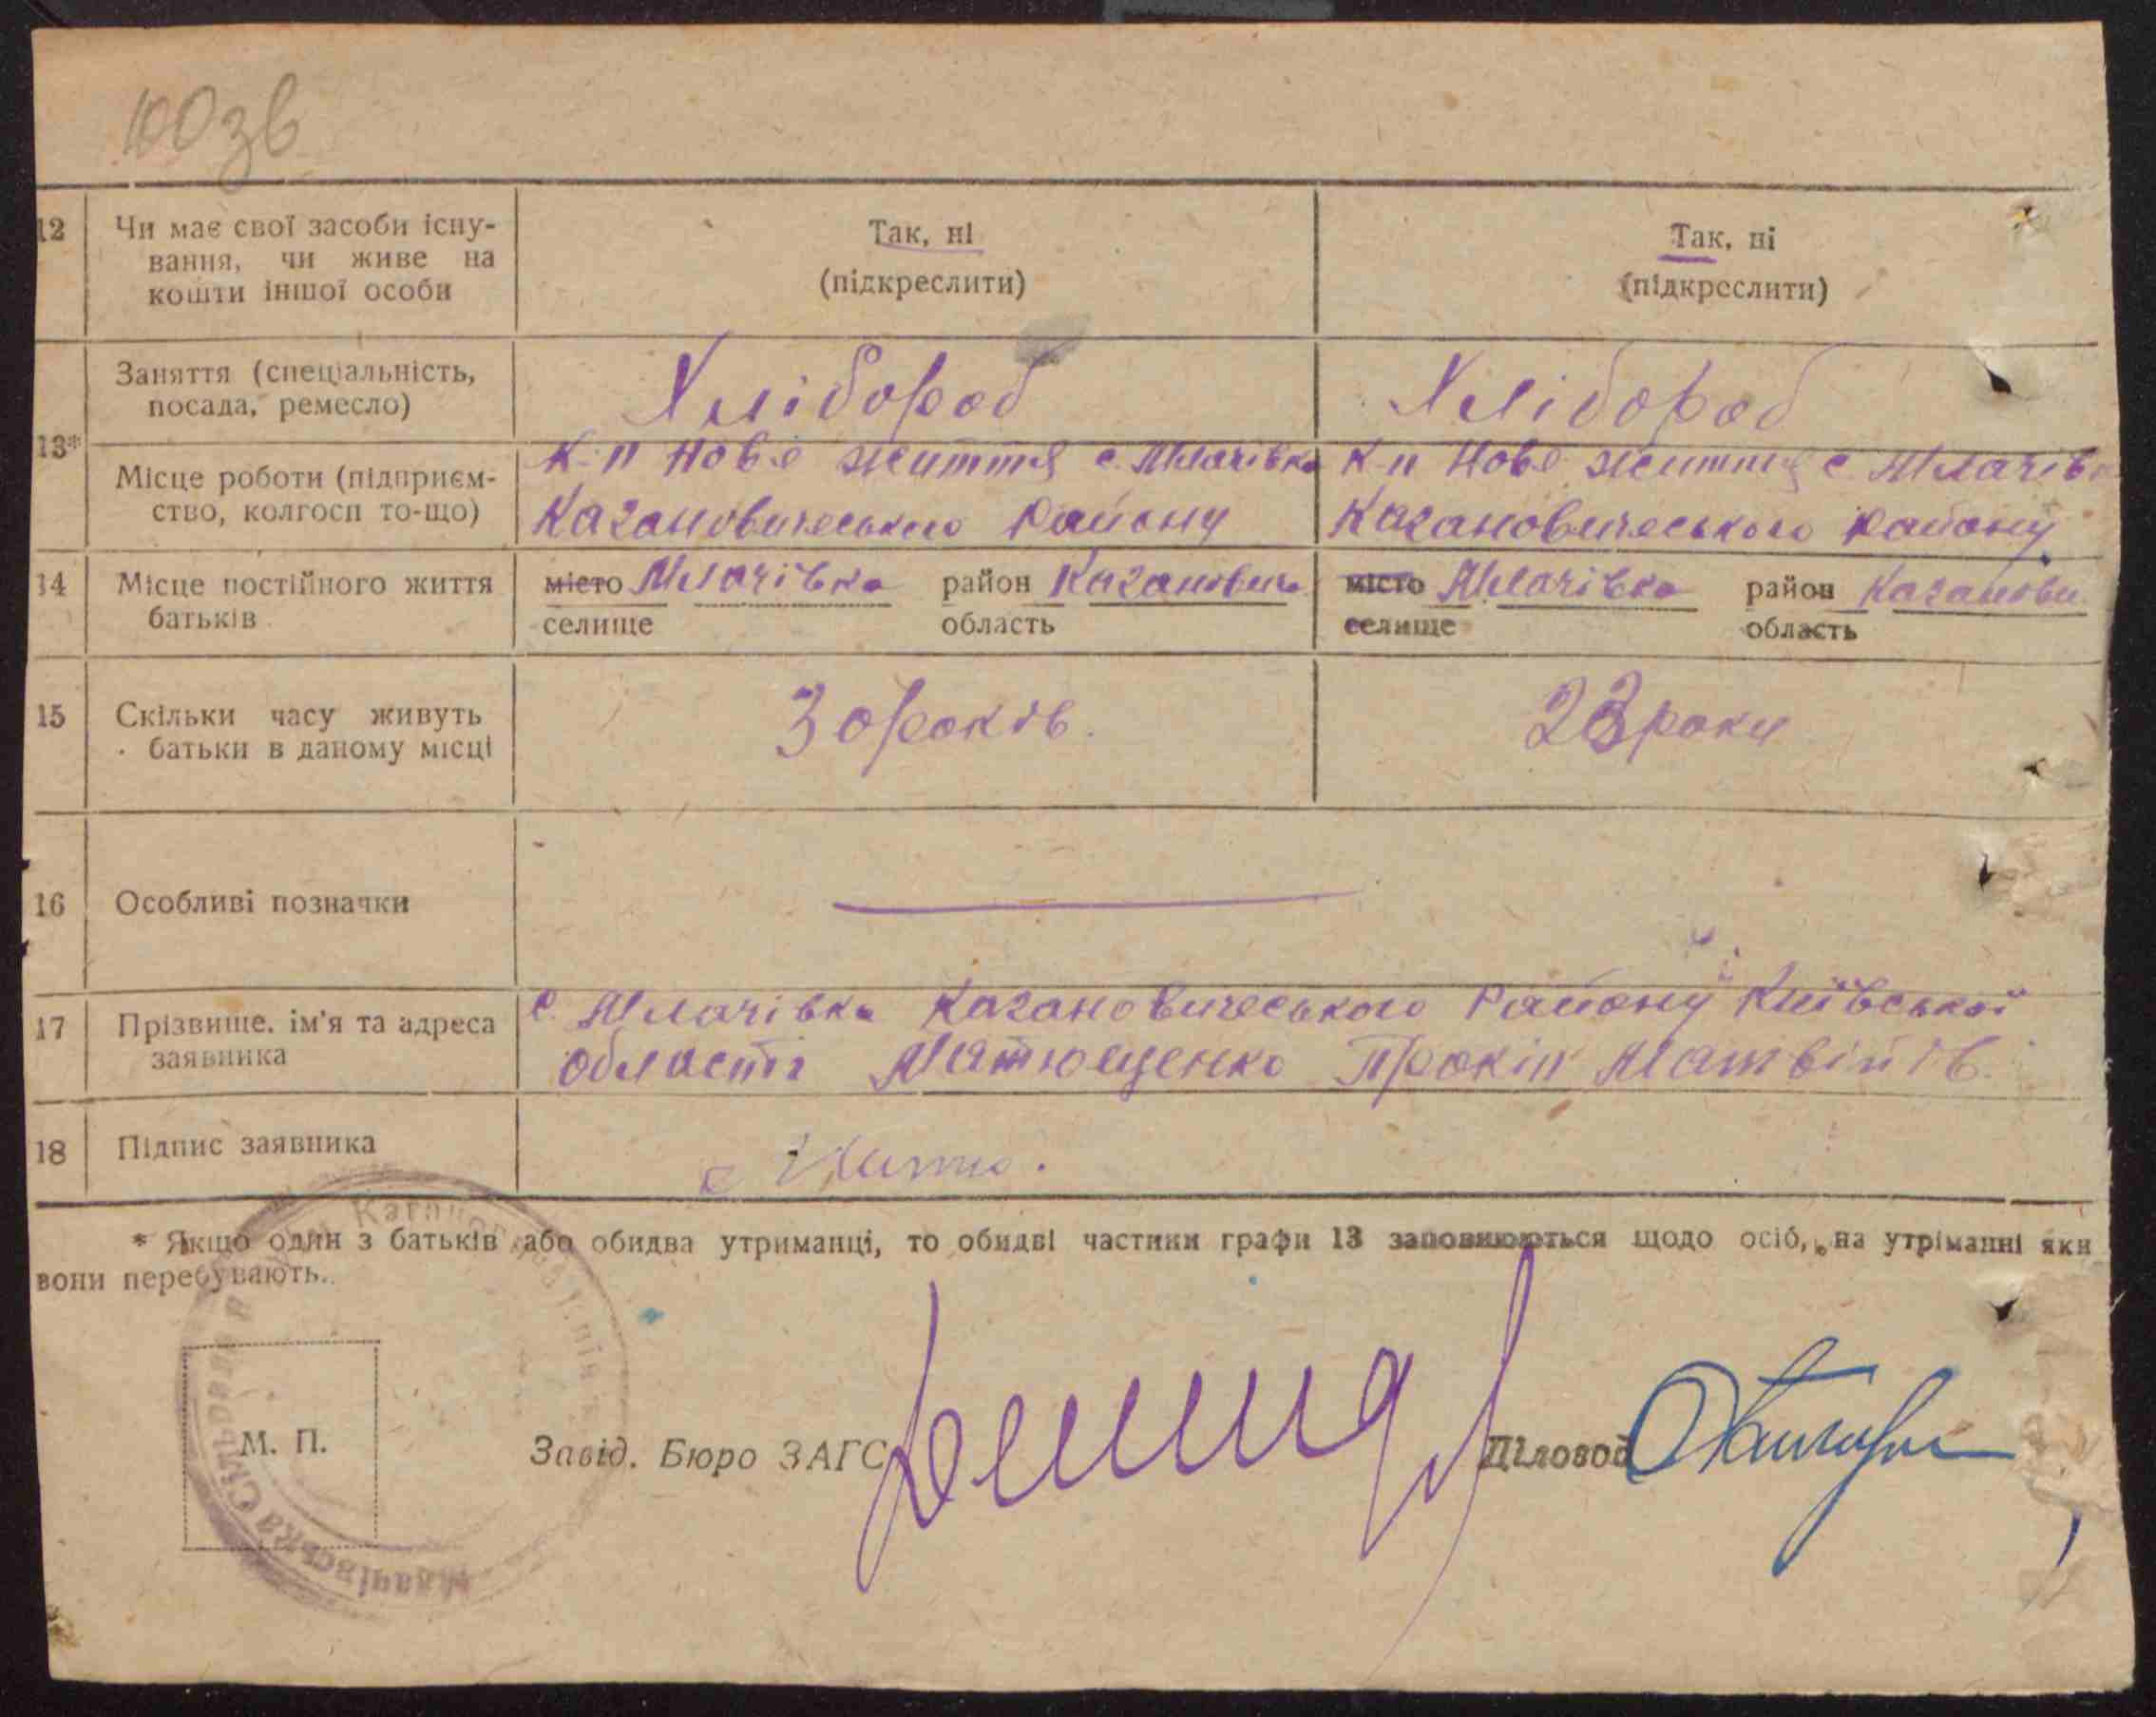 100зв
12 Чи має свої засоби існу-
вання, чи живе на
кошти іншої особи
Так, ні
(підкреслити)
Так, ні
(підкреслити)
13*
Заняття (спеціальність,
посада, ремесло)
Хлібороб
Хлібороб
Місце роботи (підприєм-
ство, колгосп то-що)
К-п Нове життя с. Млачівка
Кагановичеського району
К-п Нове життя с. Млачівк
Кагановичеського району
14 Місце постійного життя
батьків
місто Млачівка район Каганович
селище область
місто Млачівка район Каганови
селище область
15 Скільки часу живуть
батьки в даному місці
30 років.
23 роки
16 Особливі позначки
17 Прізвище, ім'я та адреса
заявника
с. Млачівка Кагановичеського Району Київської
області Матющенко Прокіп Матвіїв.
18 Підпис заявника
* Якщо один з батьків або обидва утриманці, то обидві частини графи 13 заповнюються щодо осіб, на утріманні яки
вони перебувають.
М. П.
Завід. Бюро ЗАГС
Діловод